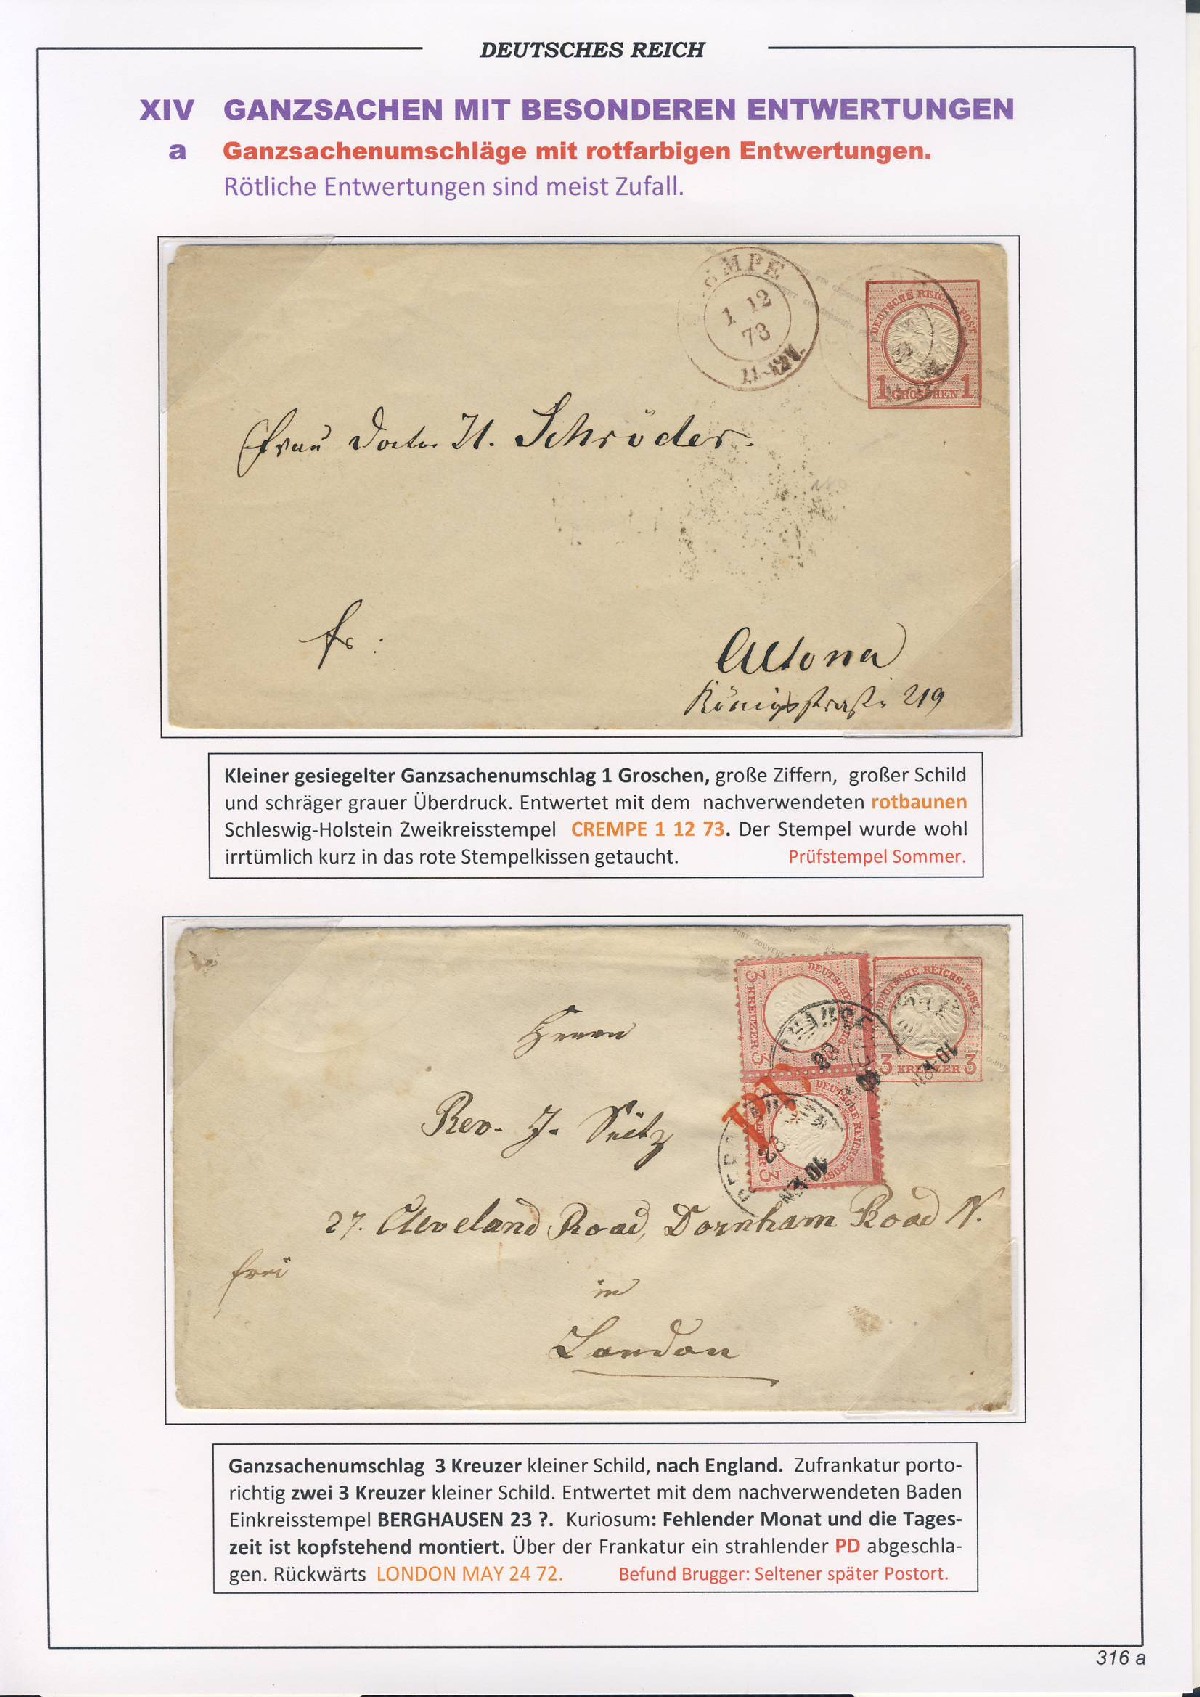 DEUTSCHES REICH
XIV GANZSACHEN MIT BESONDEREN ENTWERTUNGEN
a Ganzsachenumschläge mit rotfarbigen Entwertungen.
Rötliche Entwertungen sind meist Zufall.
1 12
73
DEUTSCHE REICHS-POST
1 GROSCHEN 1
Frau Doctor H. Schröder.
fr:
Altona
Königsstraße 219
Kleiner gesiegelter Ganzsachenumschlag 1 Groschen, große Ziffern, großer Schild
und schräger grauer Überdruck. Entwertet mit dem nachverwendeten rotbaunen
Schleswig-Holstein Zweikreisstempel CREMPE 1 12 73. Der Stempel wurde wohl
irrtümlich kurz in das rote Stempelkissen getaucht. Prüfstempel Sommer.
DEUTSCHE REICHS-POST
3 KREUZER 3
PD
Herrn
Rev. J. Seitz
27. Cleveland Road, Dornham Road N.
frei
in
London
Ganzsachenumschlag 3 Kreuzer kleiner Schild, nach England. Zufrankatur porto-
richtig zwei 3 Kreuzer kleiner Schild. Entwertet mit dem nachverwendeten Baden
Einkreisstempel BERGHAUSEN 23 ?. Kuriosum: Fehlender Monat und die Tages-
zeit ist kopfstehend montiert. Über der Frankatur ein strahlender PD abgeschla-
gen. Rückwärts LONDON MAY 24 72. Befund Brugger: Seltener später Postort.
316 a